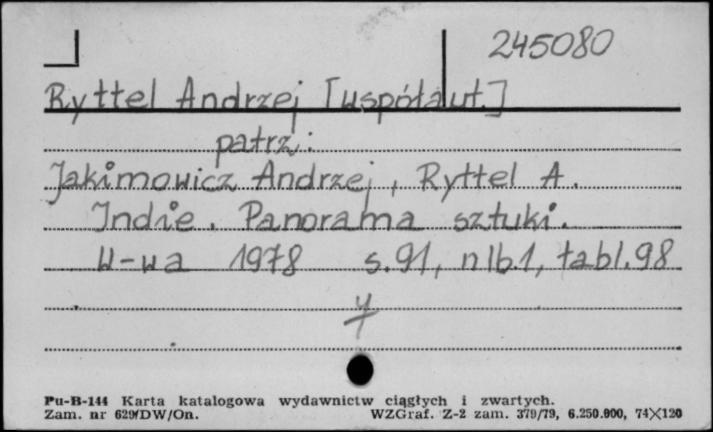 245080
Ryttel Andrzej [współaut.]
patrz:
Jakimowicz Andrzej, Ryttel A.
Indie. Panorama sztuki.
W-wa 1978 s.91, nlb.1, tabl.98
Pu-B-144 Karta katalogowa wydawnictw ciągłych i zwartych.
Zam. nr 629/DW/On. WZGraf. Z-2 zam. 379/79, 6.250.000, 74X120